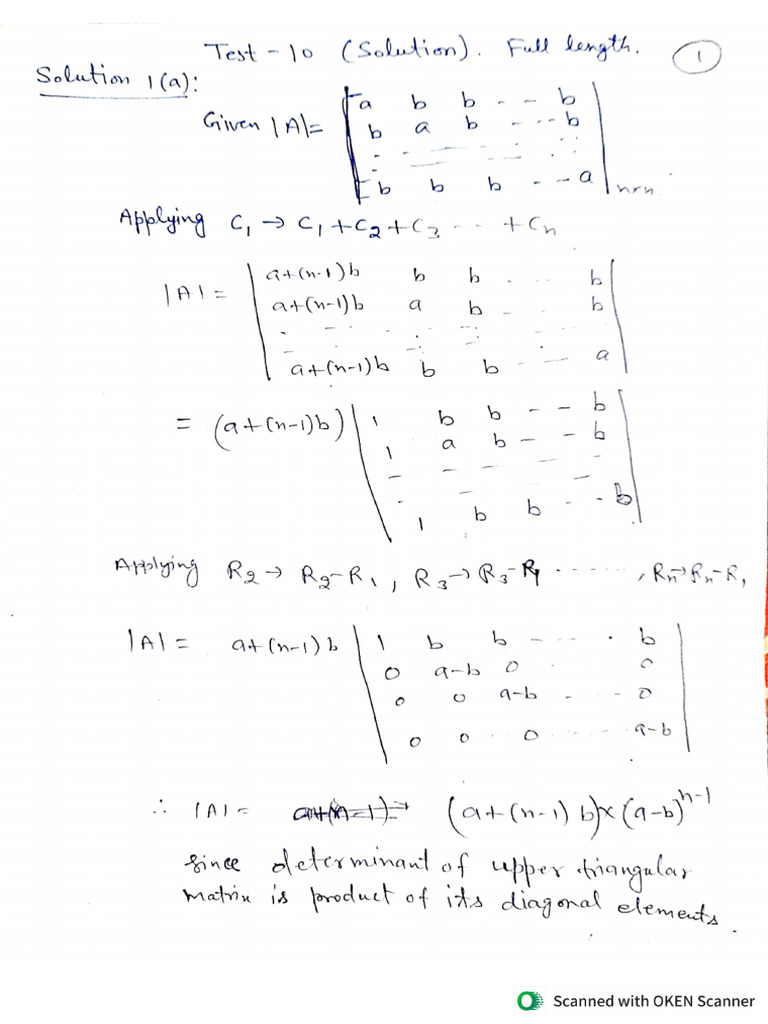 Test - 10 (Solution). Full length. 1
Solution 1(a):
Given |A| =
a b b - - b
b a b - - - b
b b b - - a
n×n
Applying C₁ → C₁ + C₂ + C₃ ... + Cₙ
|A| =
a+(n-1)b b b . - - b
a+(n-1)b a b - - b
a+(n-1)b b b - - - a
= (a+(n-1)b)
1 b b - - b
1 a b - - b
1 b b - - b
Applying R₂ → R₂-R₁, R₃ → R₃-R₁ ........, Rₙ→Rₙ-R₁
|A| = a+(n-1)b
1 b b - - - . b
0 a-b 0 . . 0
0 0 a-b - - - 0
0 0 0 ..... a-b
∴ |A| = (a+(n-1)b)×(a-b)ⁿ⁻¹
since determinant of upper triangular
matrix is product of its diagonal elements.
Scanned with OKEN Scanner